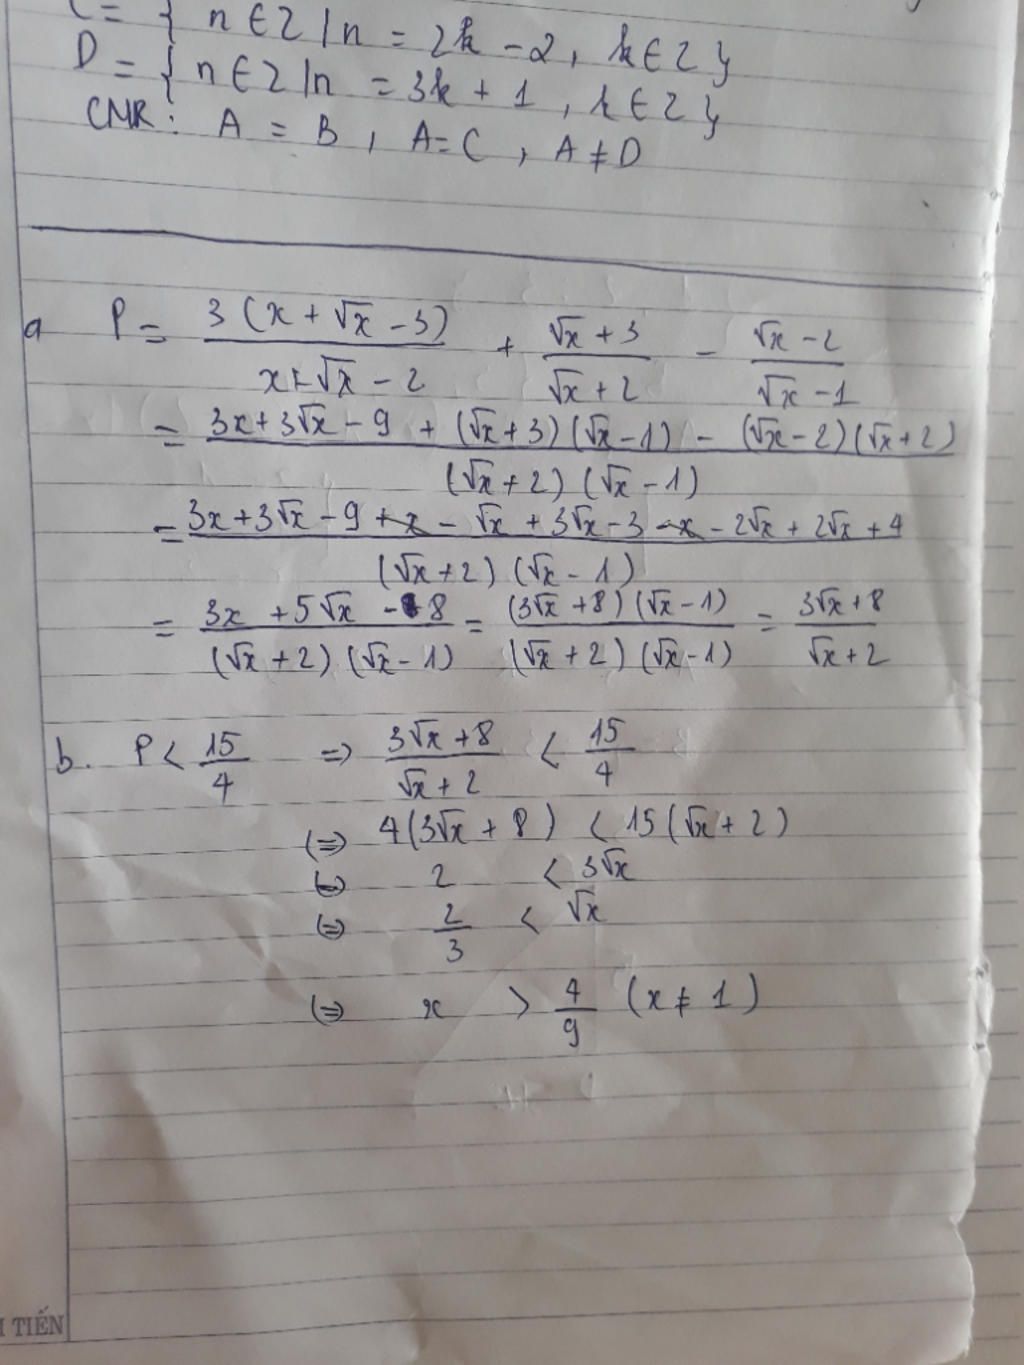 C = { n ∈ Z | n = 2k - 2, k ∈ Z }
D = { n ∈ Z | n = 3k + 1, k ∈ Z }
CMR: A = B, A = C, A ≠ D
a P = 3(x + √x - 3) / (x + √x - 2) + (√x + 3) / (√x + 2) - (√x - 2) / (√x - 1)
= (3x + 3√x - 9 + (√x + 3)(√x - 1) - (√x - 2)(√x + 2)) / ((√x + 2)(√x - 1))
= (3x + 3√x - 9 + x - √x + 3√x - 3 - x - 2√x + 2√x + 4) / ((√x + 2)(√x - 1))
= (3x + 5√x - 8) / ((√x + 2)(√x - 1)) = ((3√x + 8)(√x - 1)) / ((√x + 2)(√x - 1)) = (3√x + 8) / (√x + 2)
b. P < 15/4 => (3√x + 8) / (√x + 2) < 15/4
(=) 4(3√x + 8) < 15(√x + 2)
(=) 2 < 3√x
(=) 2/3 < √x
(=) x > 4/9 (x ≠ 1)
TIẾN